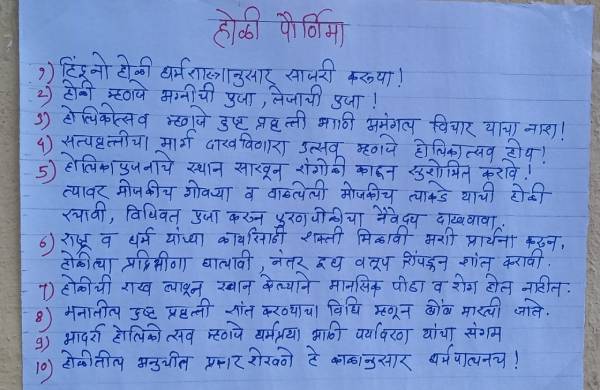 होळी पौर्णिमा
१) हिंदूनो होळी धर्मशास्त्रानुसार साजरी करूया!
2) होळी म्हणजे अग्नीची पुजा, तेजाची पुजा!
3) होलिकोत्सव म्हणजे दुष्ट प्रवृत्ती आणि अमंगल विचार याचा नाश!
4) सत्प्रवृत्तीचा मार्ग दाखविणारा उत्सव म्हणजे होलिकोत्सव होय!
5) होलिकापुजनाचे स्थान सारवून रांगोळी काढून सुशोभित करावे!
त्यावर मोजकीच गोवऱ्या व वाळलेली मोजकीच लाकडे याची होळी
रचावी, विधिवत पुजा करून पुरणपोळीचा नैवेद्य दाखवावा.
6) राष्ट्र व धर्म यांच्या कार्यासाठी शक्ती मिळावी अशी प्रार्थना करुन,
होळीला प्रदक्षिणा घालावी, नंतर दूध व तूप शिंपडून शांत करावी.
7) होळीची राख लावून स्नान केल्याने मानसिक पीडा व रोग होत नाहीत.
8) मनातील दुष्ट प्रवृत्ती शांत करण्याचा विधि म्हणून बोंब मारली जाते.
9) आदर्श होलिकोत्सव म्हणजे धर्मप्रथा आणि पर्यावरण यांचा संगम
10) होळीतील अनुचीत प्रकार रोखणे हे काळानुसार धर्मपालनच!